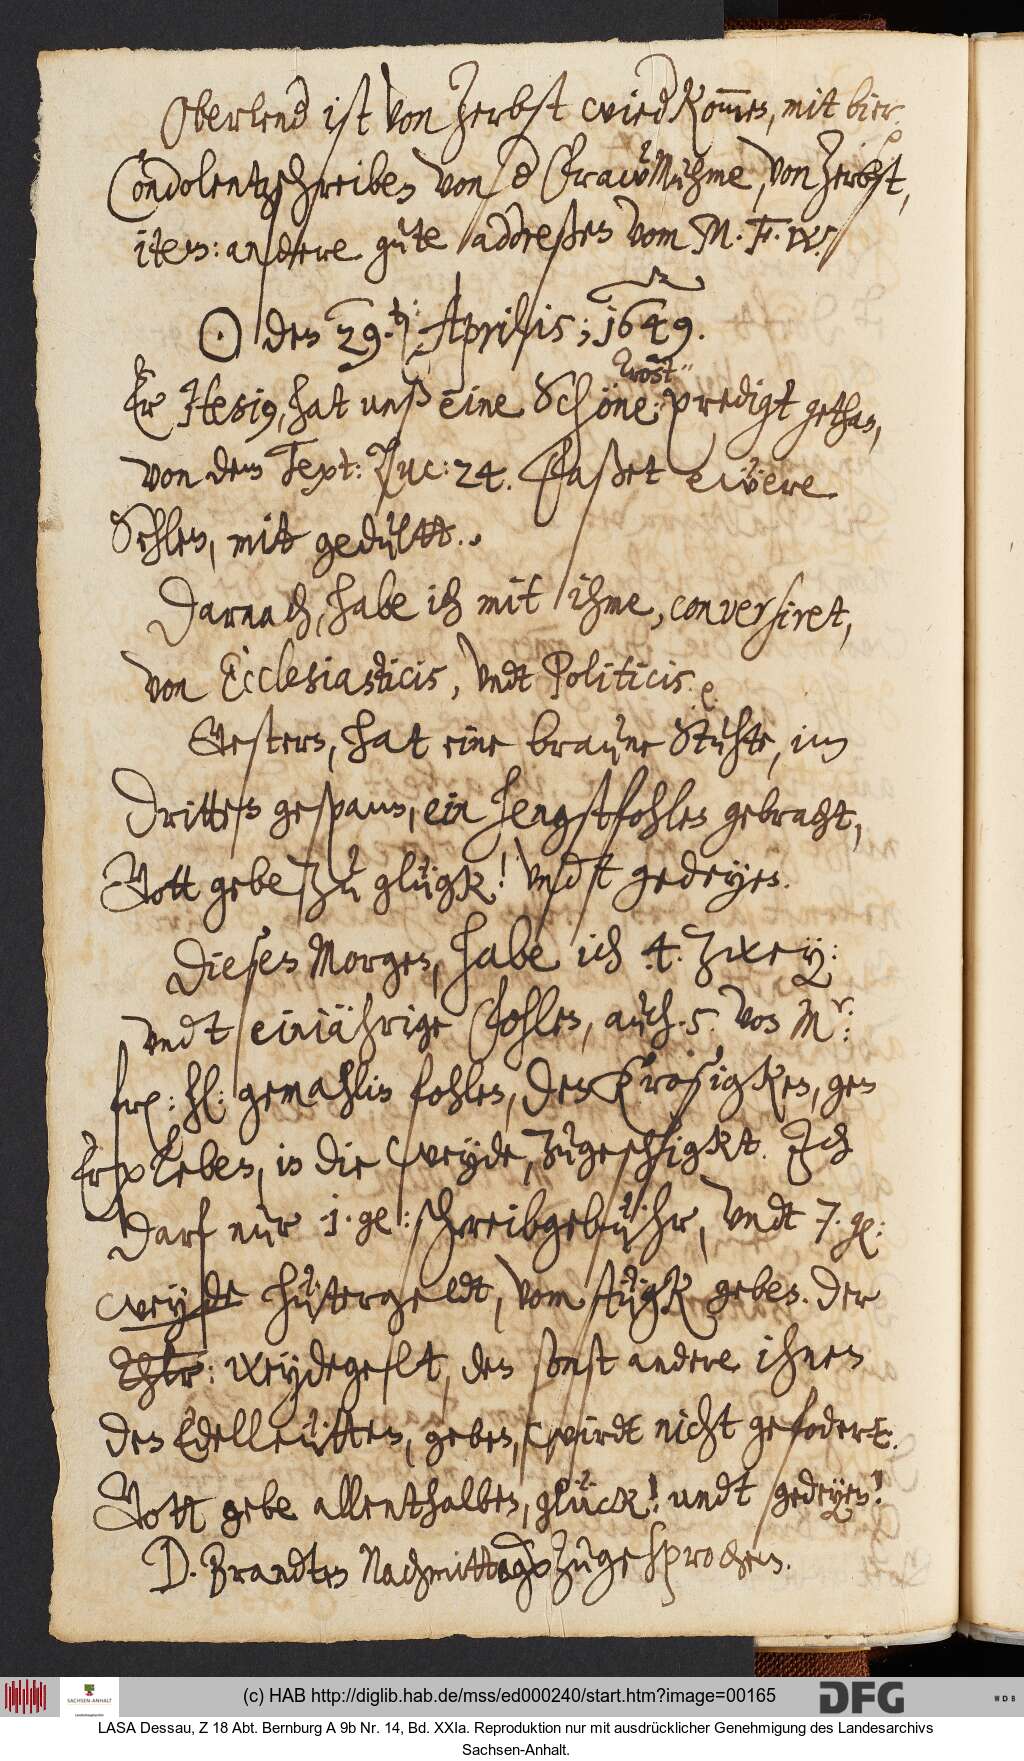 Oberlend ist von Zerbst wiedkom̅en, mit bier.
Condolentzschreiben von d Fraw Muhme, von Zerbst,
item: andere gute addreßen vom M. F. W.
☉ den 29. t: Aprilis; 1649.
Trost-
Er Hesig, hat unß eine Schöne: predigt gethan,
von dem Text: Luc: 24. Faßet ewere
Sehlen, mit gedultt.
Darnach, habe ich mit ihme, conversiret,
von Ecclesiasticis, vndt Politicis.
Gestern, hat eine braune Stuhte, im
dritten gespann, ein Hengstfohlen gebracht,
Gott gebe zu glügk! vndt gedeyen.
Diesen Morgen, habe ich 4. Zwey:
vndt einiährige Fohlen, auch 5. von Mr:
frl: hl: gemahlin fohlen, den Krosigken, gen
Erxleben, in die weyde, zugeschigkt. Ich
darf nur 1. gl: schreibgebühr, vndt 7. gl:
weyde hütergeldt, vom stügk geben. Der
Thlr: weydegelt, den sonst andere ihnen
den Edelleütten, geben, wirdt nicht gefodert.
Gott gebe allenthalben, glück! undt gedeyen!
D. Brandten Nachmittags zugesprochen.
(c) HAB http://diglib.hab.de/mss/ed000240/start.htm?image=00165
SACHSEN-ANHALT
DFG
WDB
LASA Dessau, Z 18 Abt. Bernburg A 9b Nr. 14, Bd. XXIa. Reproduktion nur mit ausdrücklicher Genehmigung des Landesarchivs
Sachsen-Anhalt.